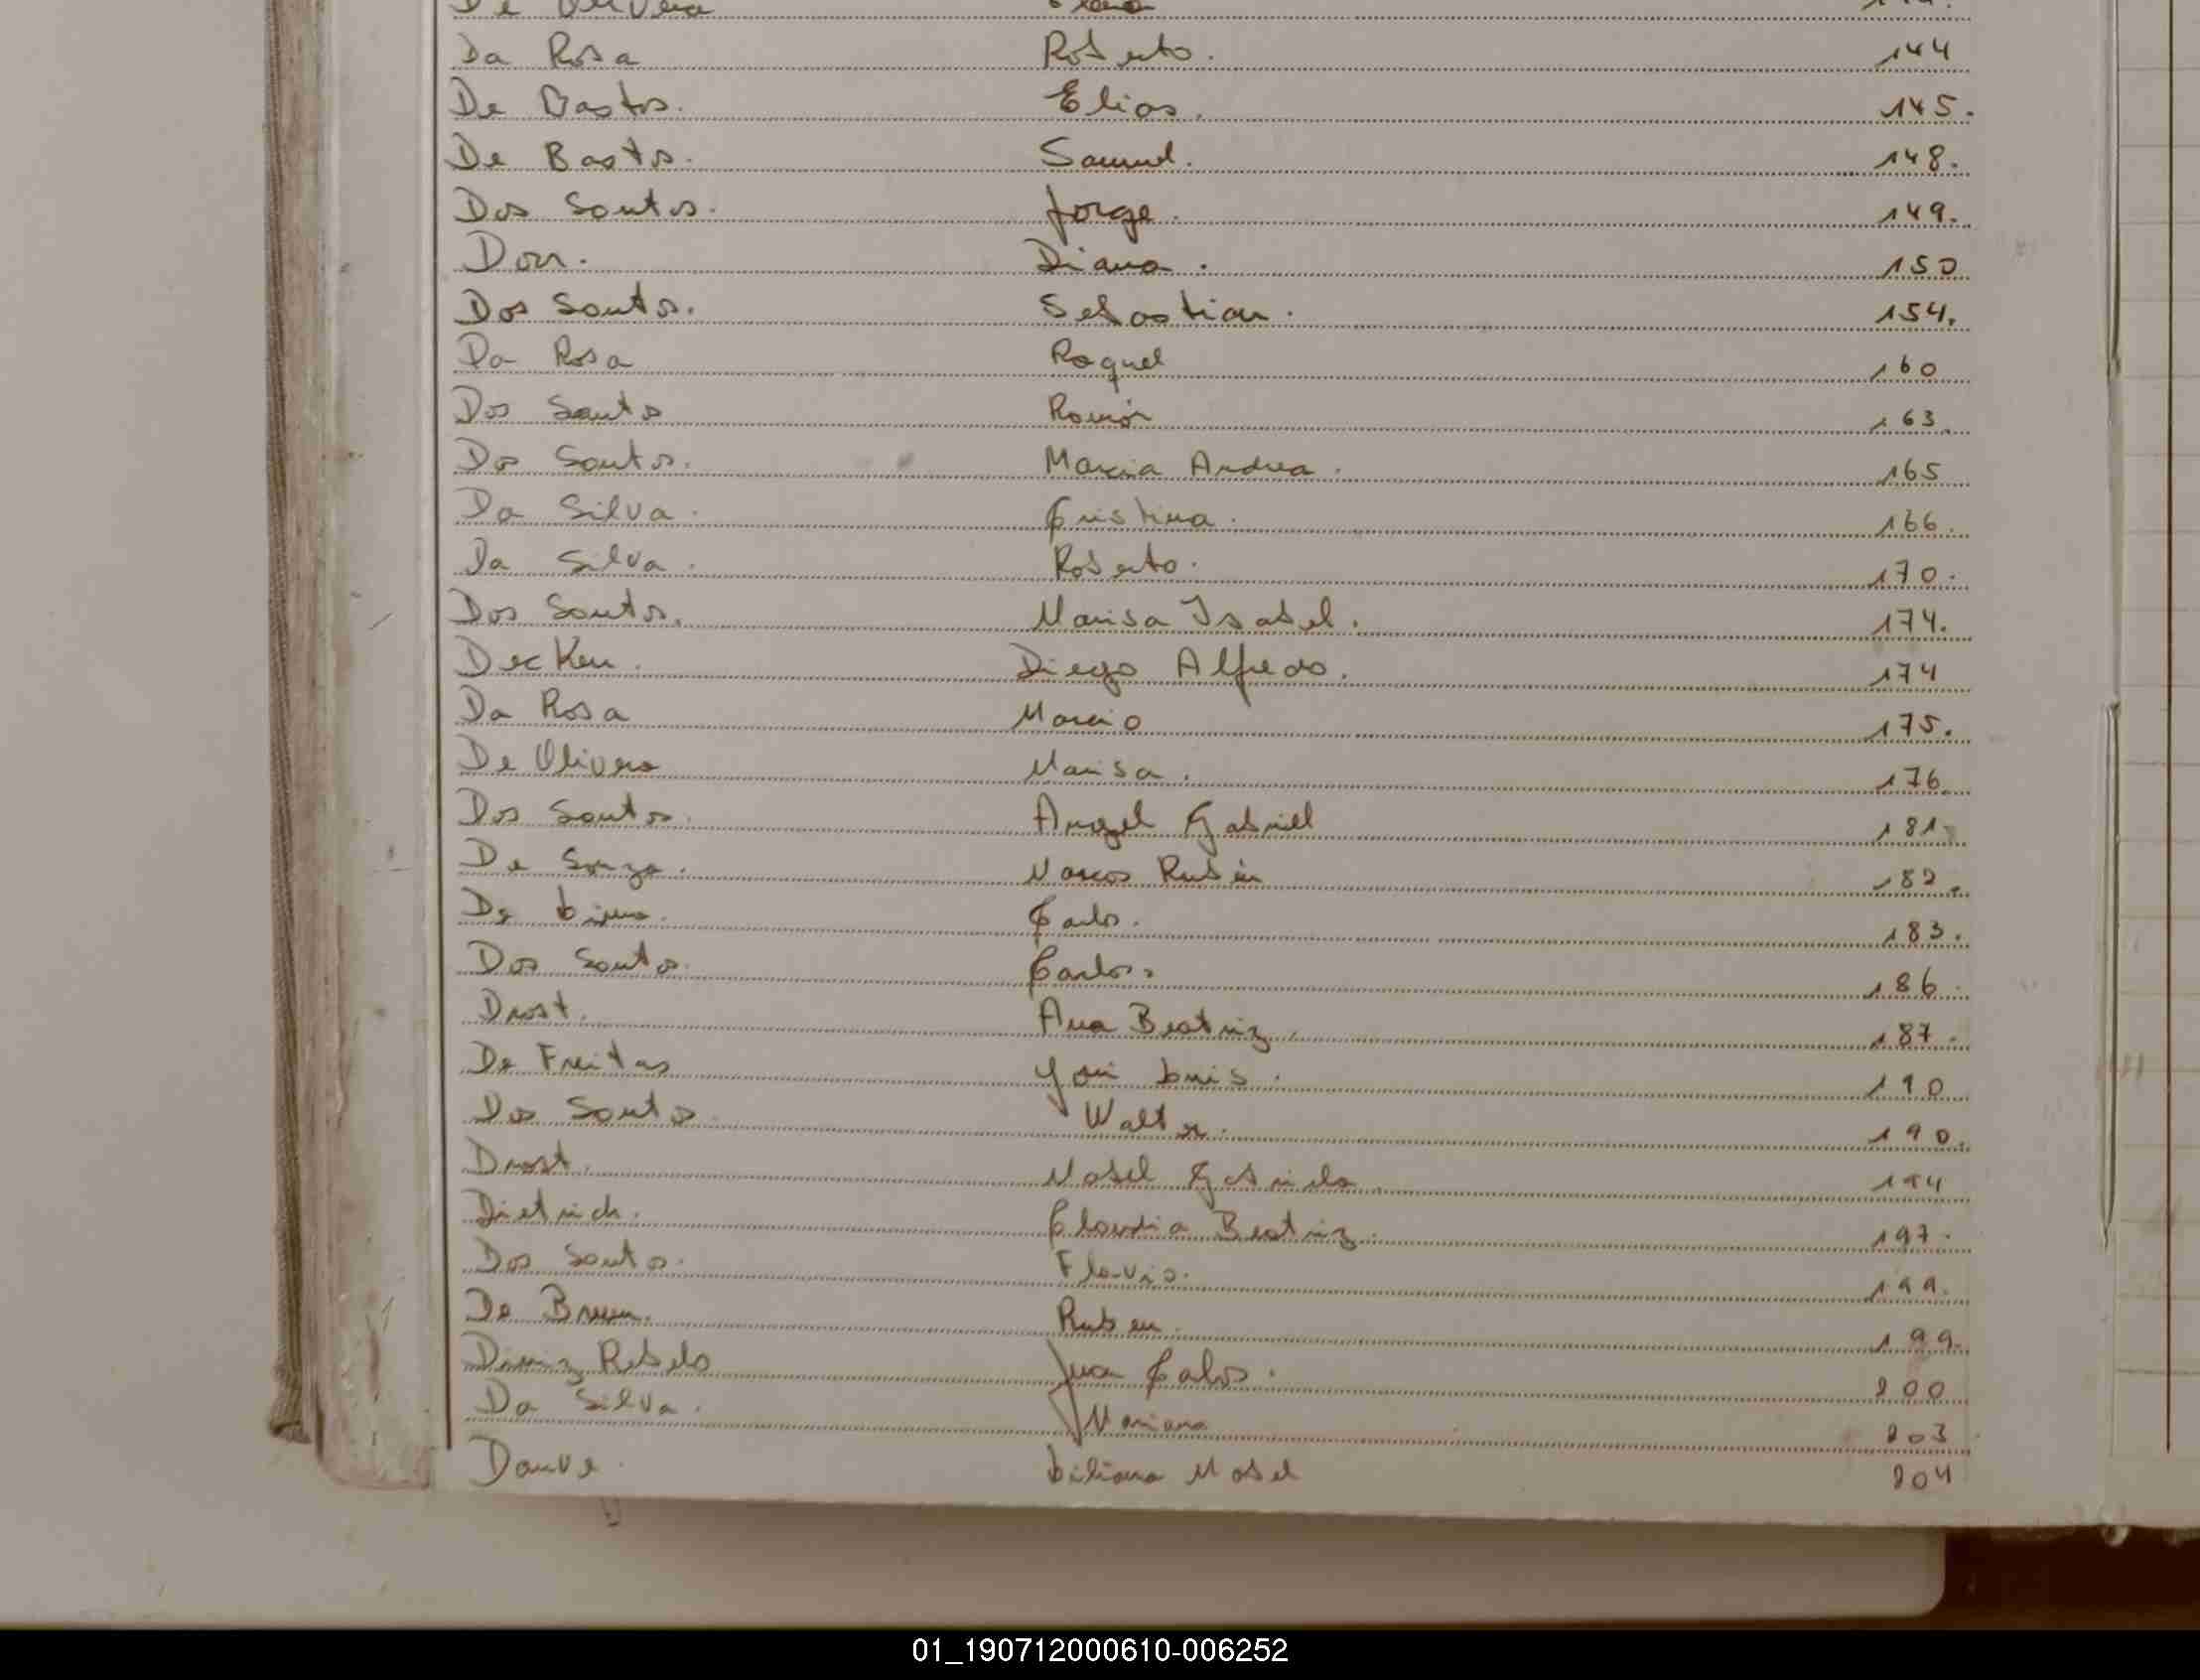 De Olivera
Da Rosa Roberto. 144
De Bastos. Elias. 145.
De Bastos. Samuel. 148.
Dos Santos. Jorge. 149.
Dorr. Diana. 150
Dos Santos. Sebastian. 154.
Da Rosa Raquel 160
Dos Santos Ramón 163.
Dos Santos. Marcia Andrea. 165
Da Silva. Cristina. 166.
Da Silva. Roberto. 170.
Dos Santos. Marisa Isabel. 174.
Decker. Diego Alfredo. 174
Da Rosa Marcio 175.
De Olivera Marisa. 176.
Dos Santos. Angel Gabriel 181.
De Souza. Marcos Rubén 182.
De Lima. Carlos. 183.
Dos Santos. Carlos. 186.
Drost. Ana Beatriz. 187.
De Freitas José Luis. 190
Dos Santos. Walter. 190.
Drost. Mabel Gabriela. 194
Dietrich. Claudia Beatriz. 197.
Dos Santos. Flavio. 199.
De Ruben. 199.
Rebelo Juan Carlos. 200
Da Silva. Mariana 203
Liliana Mabel 204
01_190712000610-006252